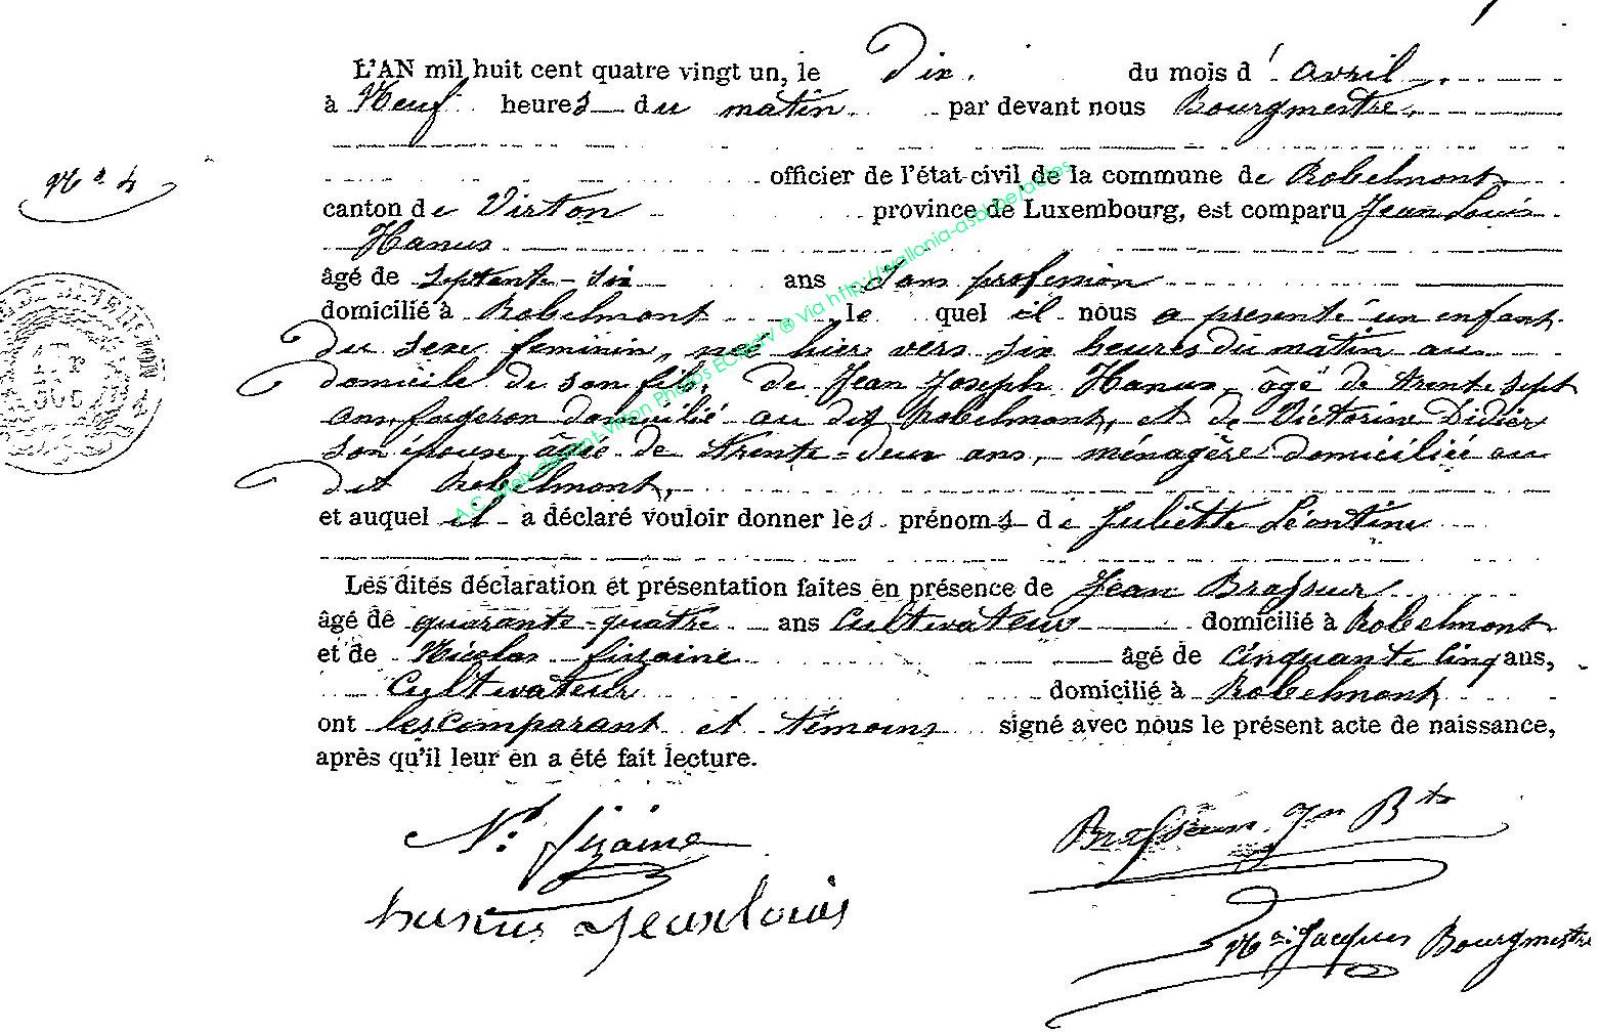 L'AN mil huit cent quatre vingt un, le Dix. du mois d'avril
à Neuf heures du matin par devant nous Bourgmestre,
officier de l'état-civil de la commune de Robelmont
N° 4
canton de Virton province de Luxembourg, est comparu Jean Louis
Hanus
âgé de septante-six ans sans profession
domicilié à Robelmont, le quel il nous a présenté un enfant
du sexe féminin, née hier vers six heures du matin au
domicile de son fils. De Jean Joseph Hanus, âgé de trente sept
ans, forgeron domicilié au dit Robelmont, et de Victorine Didier
son épouse, âgée de trente-deux ans, ménagère domiciliée au
dit Robelmont,
et auquel il a déclaré vouloir donner les prénoms de Juliette Léontine
Les dites déclaration et présentation faites en présence de Jean Brasseur
âgé de quarante-quatre ans Cultivateur domicilié à Robelmont
et de Nicolas fizaine âgé de cinquante cinq ans,
Cultivateur domicilié à Robelmont
ont les comparant et témoins signé avec nous le présent acte de naissance,
après qu'il leur en a été fait lecture.
N. fizaine
Brasseur Jn Bte
hanus Jeanlouis
Jacques Bourgmestre
via http://wallonia-asbl.be/actes